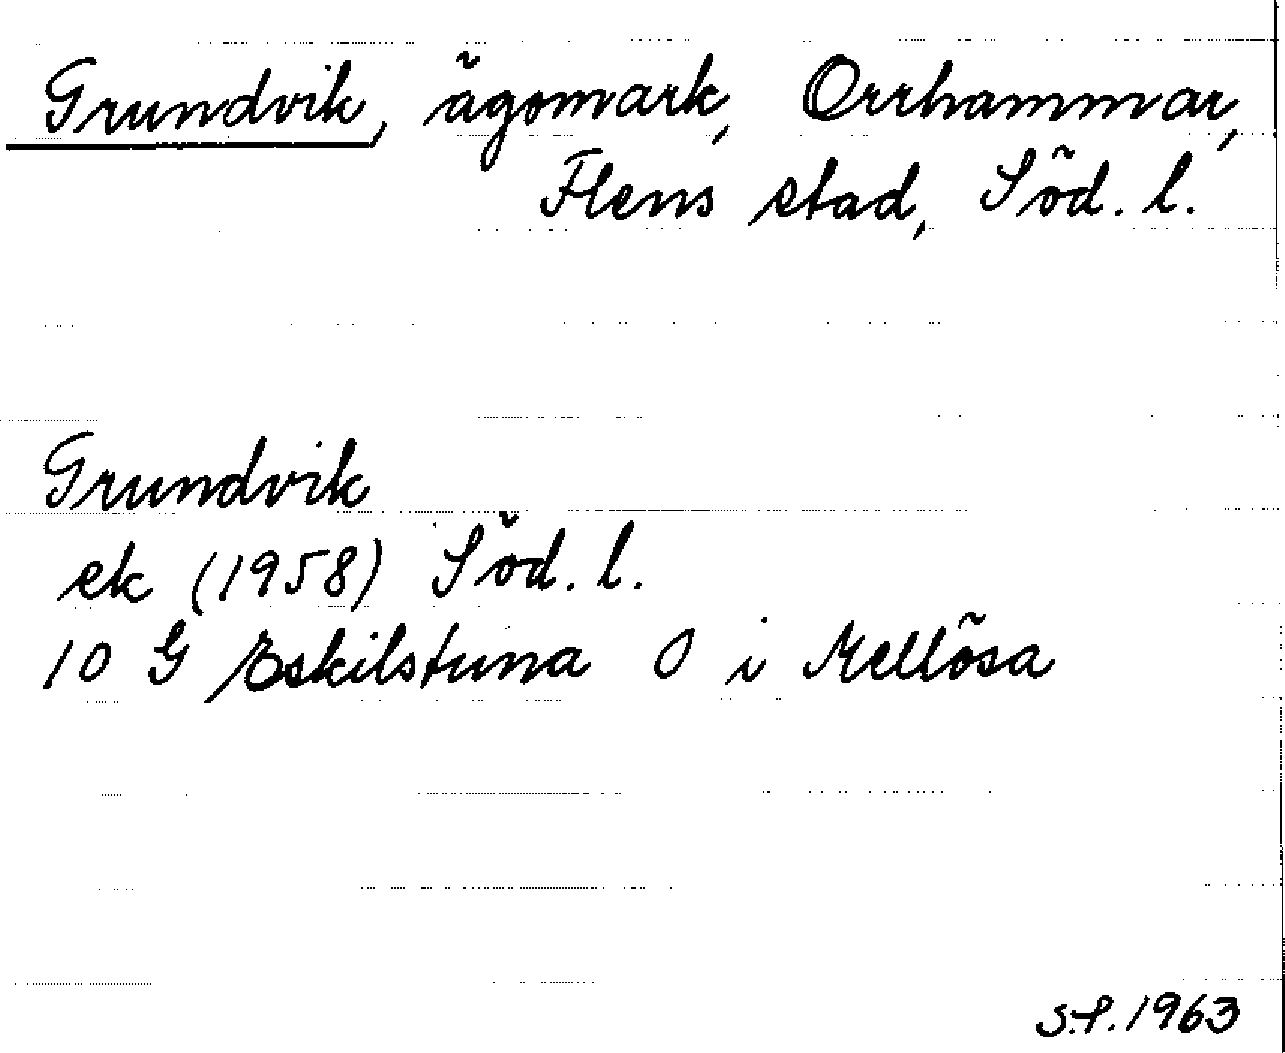 Grundvik, ägomark, Orrhammar,
Flens stad, Söd. l.
Grundvik
ek (1958) Söd. l.
10 G Eskilstuna O i Mellösa
S.P. 1963